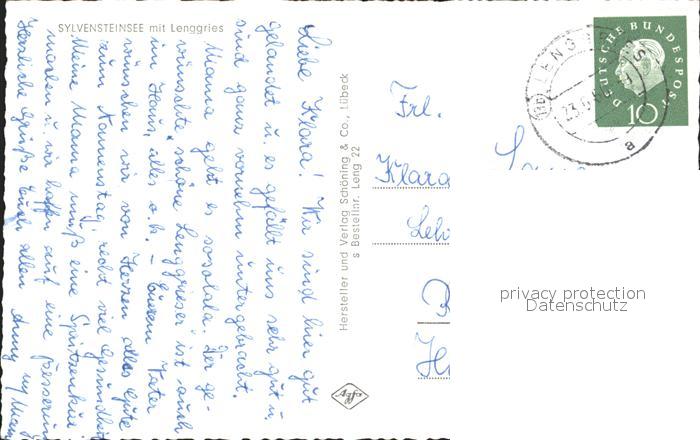 SYLVENSTEINSEE mit Lenggries
Liebe Klara! Wir sind hier gut
gelandet u. es gefällt uns sehr gut u.
sind ganz vornehm untergebracht.
Mama geht es sosolala. Der ge-
wünschte "schöne Lenggrieser" ist auch
im Haus, alles o.k. – Eurem Vater
wünschen wir von Herzen alles Gute
zum Namenstag, recht viel Gesundheit
Meine Mama muß eine Spritzenkur
machen u. wir hoffen auf eine Besserung
Herzliche Grüße Euch allen
Hersteller und Verlag Schöning & Co., Lübeck
s Bestellnr. Leng 22
Agfa
Frl.
Klara
DEUTSCHE BUNDESPOST
10
LENGGRIES
a
privacy protection
Datenschutz